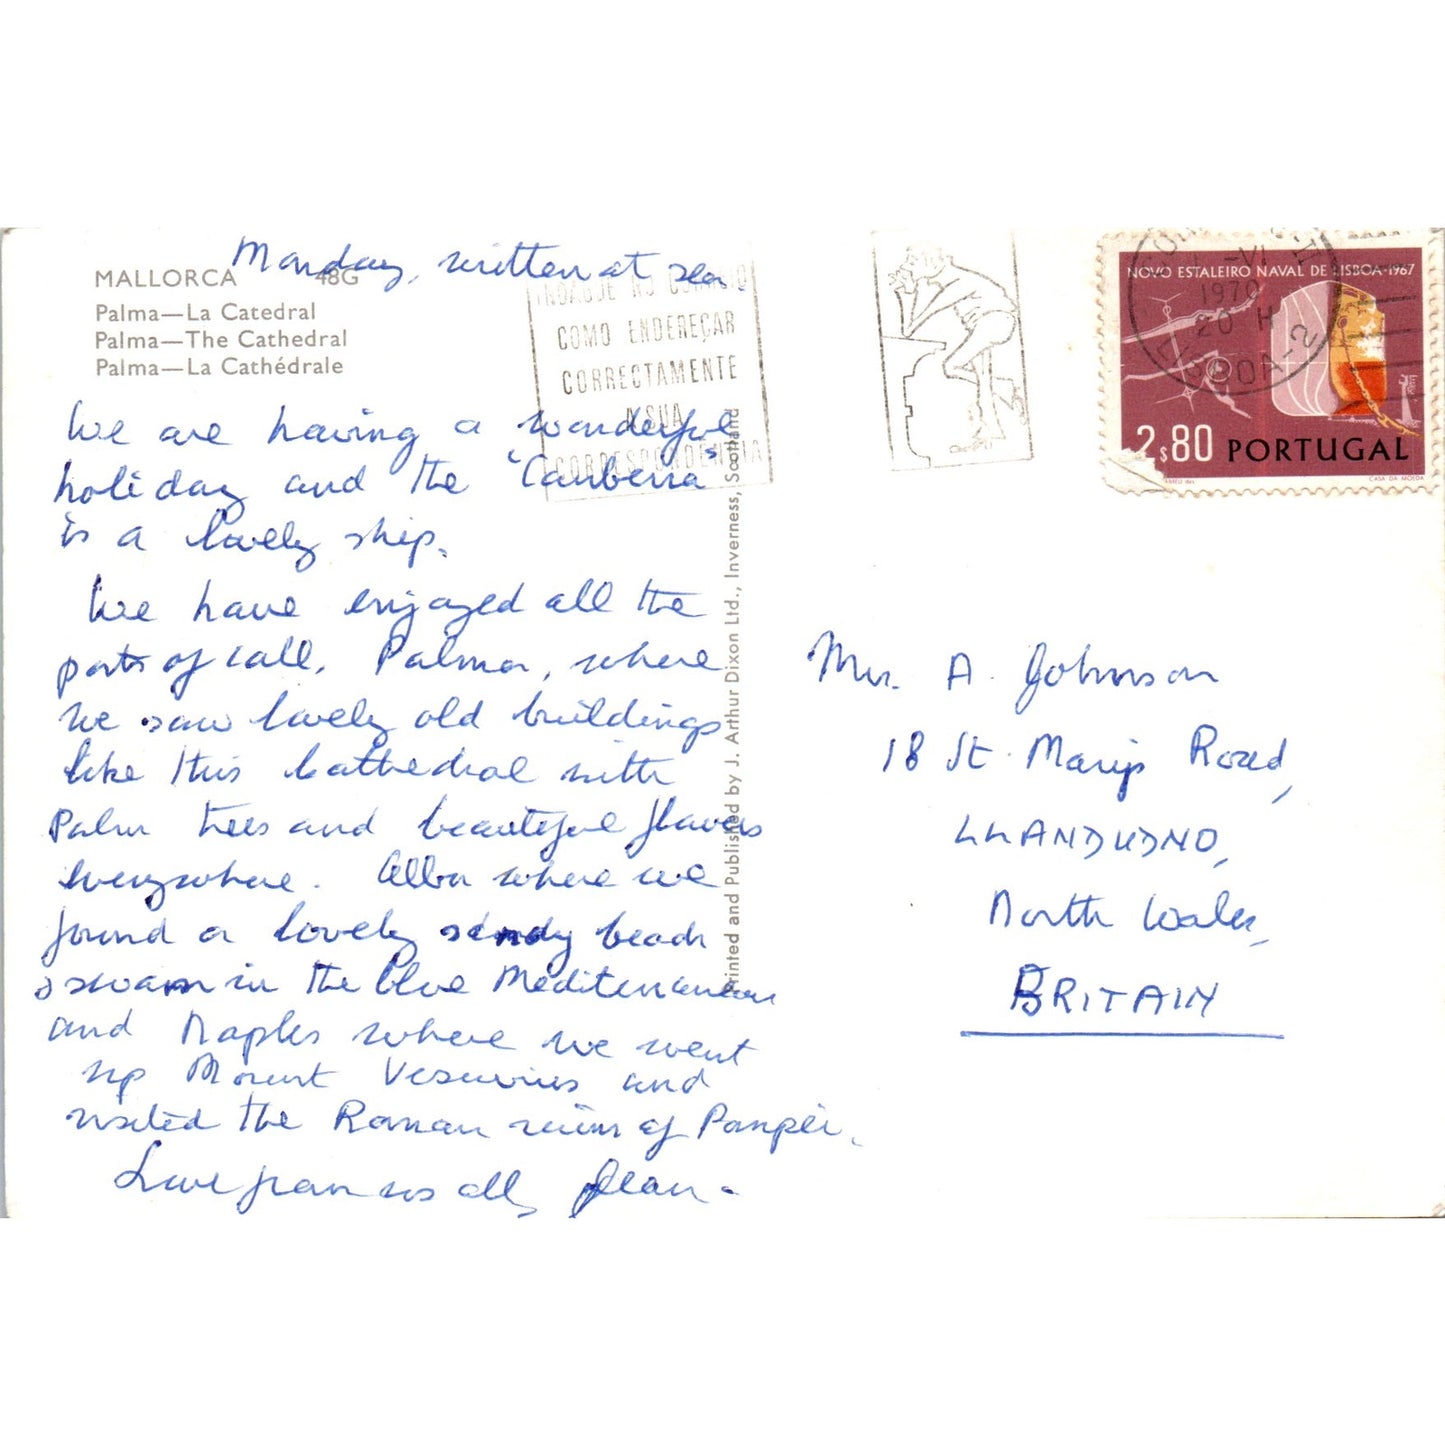 Monday, written at sea.
MALLORCA 48G
Palma—La Catedral
Palma—The Cathedral
Palma—La Cathédrale
We are having a wonderful
holiday and the "Canberra"
is a lovely ship.
We have enjoyed all the
ports of call. Palma, where
we saw lovely old buildings
like this Cathedral with
Palm trees and beautiful flowers
everywhere. Elba where we
found a lovely sandy beach
& swam in the blue Mediterranean
and Naples where we went
up Mount Vesuvius and
visited the Roman ruins of Pompei.
Love from us all, Jean.
Printed and Published by J. Arthur Dixon Ltd., Inverness, Scotland
INDAGUE NO CORREIO
COMO ENDEREÇAR
CORRECTAMENTE
A SUA
CORRESPONDENCIA
NOVO ESTALEIRO NAVAL DE LISBOA·1967
-VI
1970
20 H
LISBOA-2
2$80 PORTUGAL
CASA DA MOEDA
Mr. A. Johnson
18 St. Mary's Road,
LLANDUDNO,
North Wales,
BRITAIN